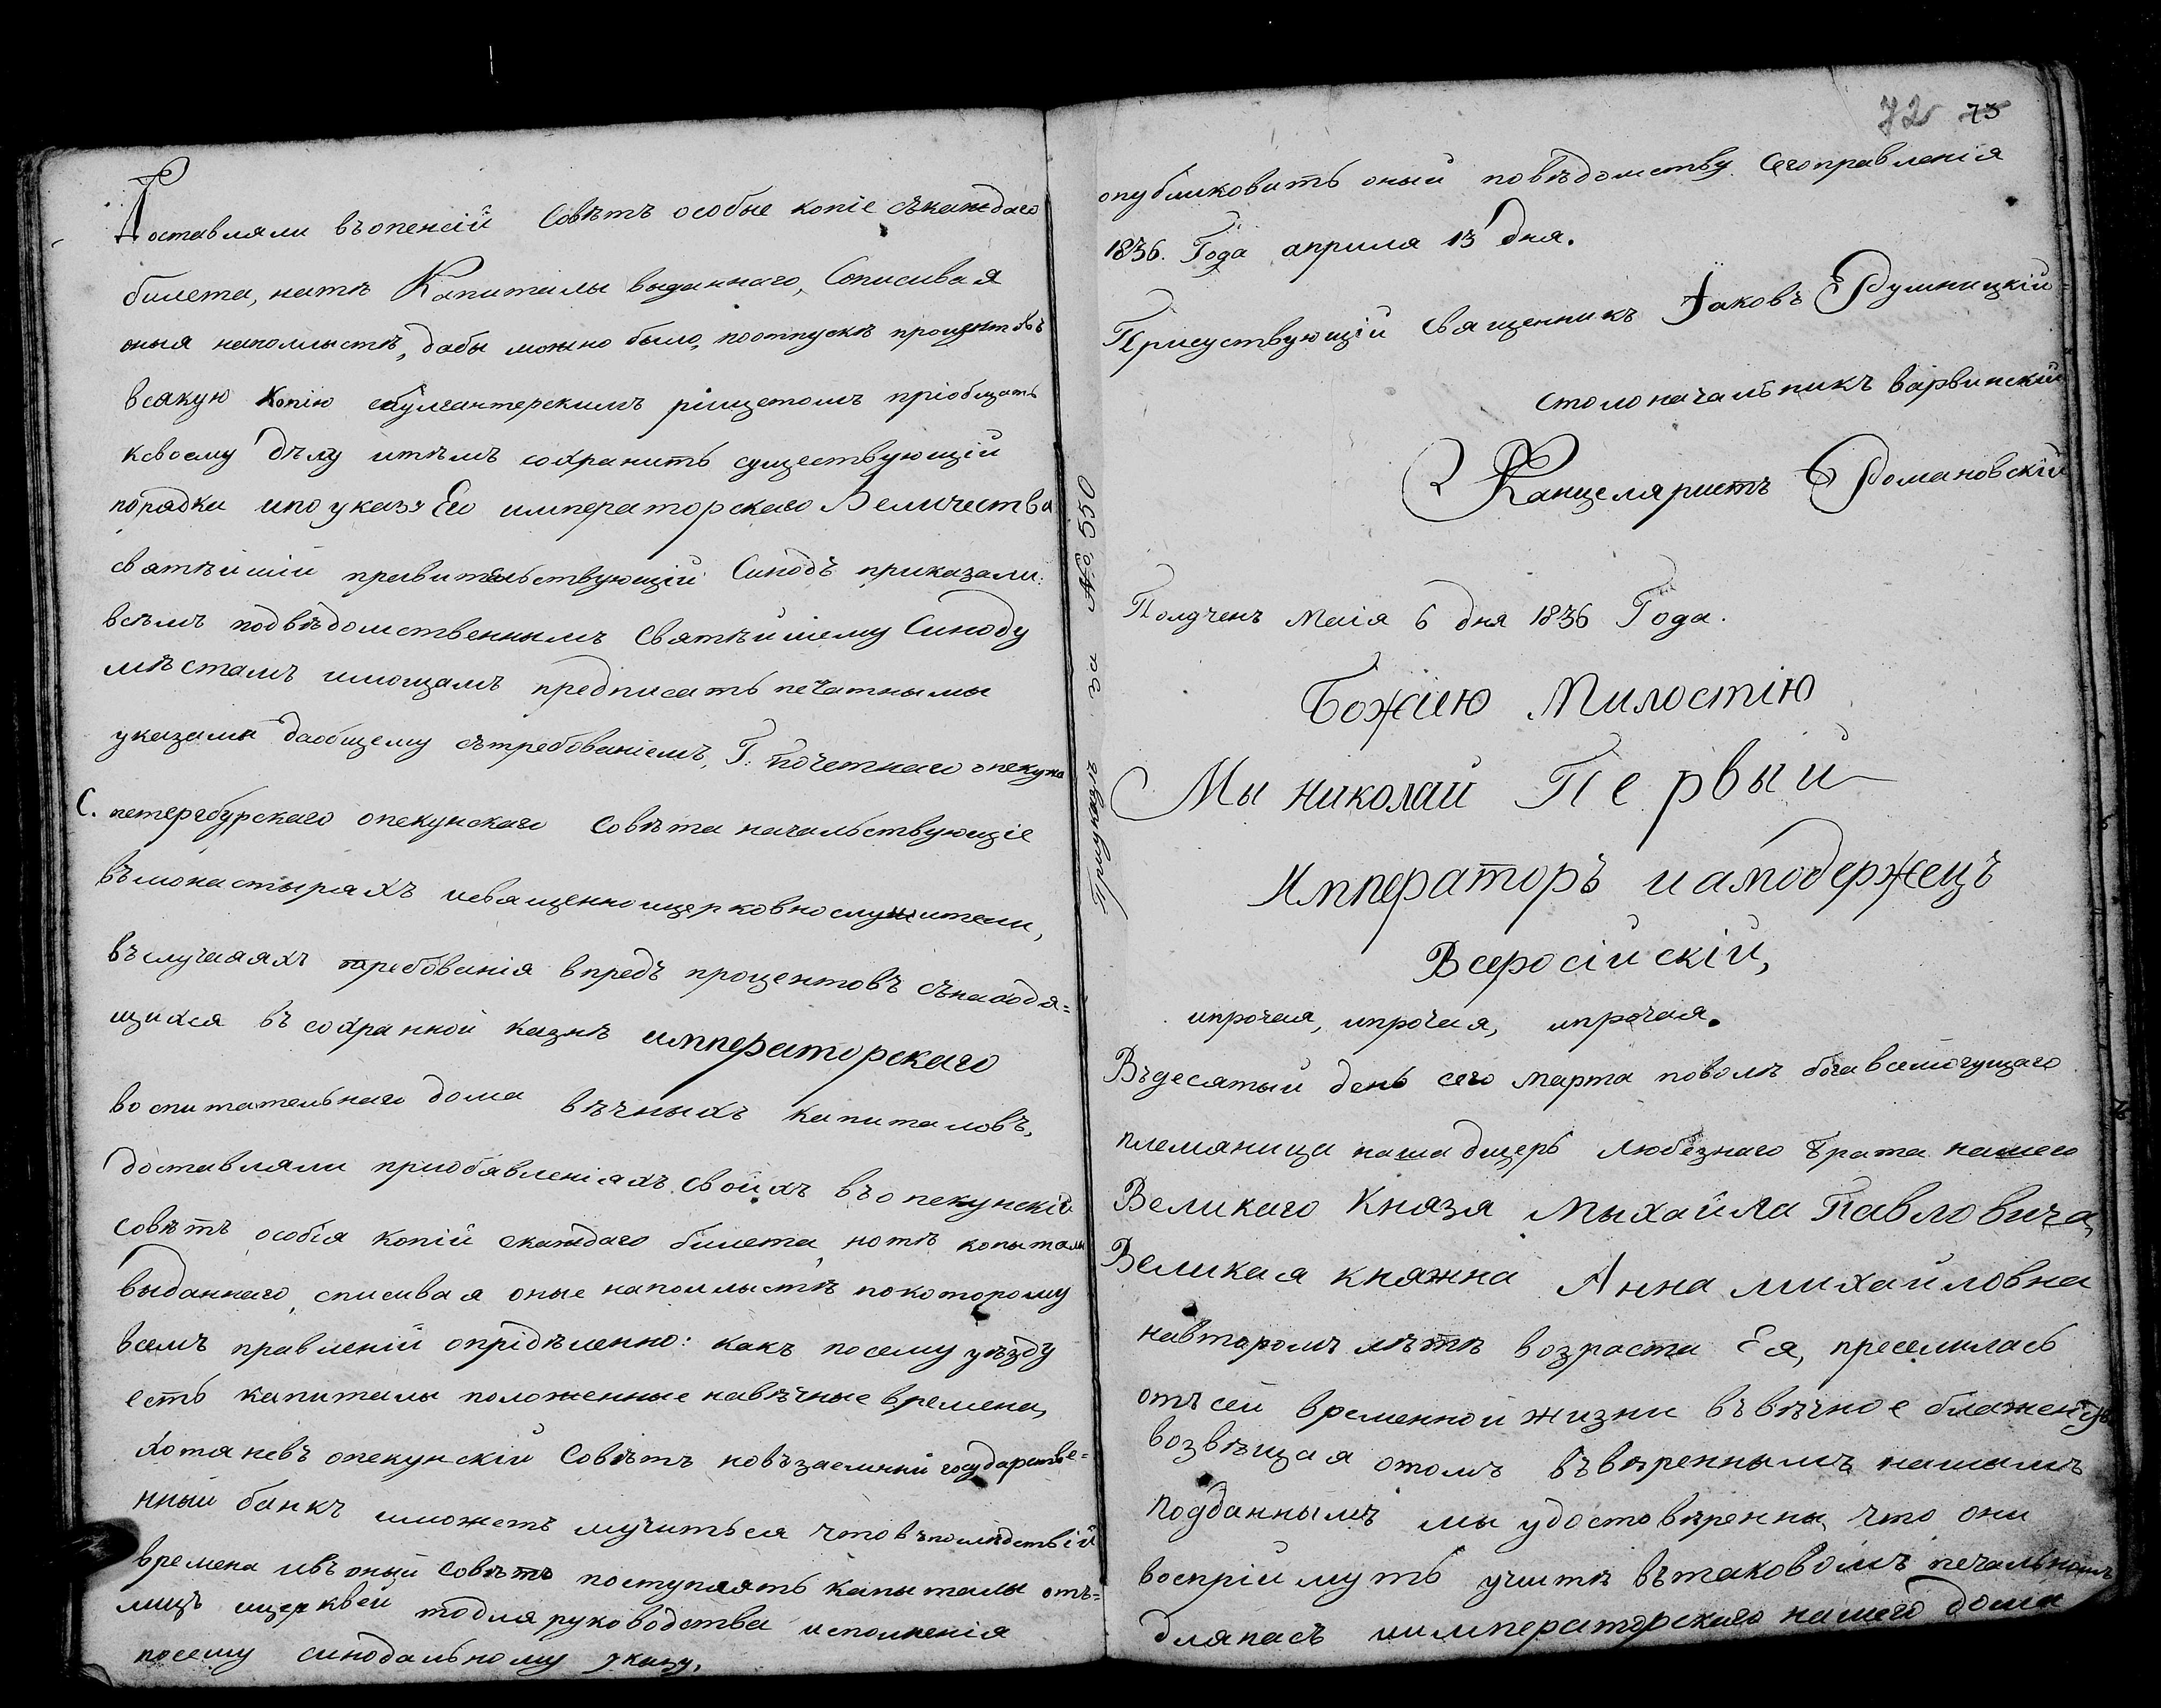 Доставляли въопенсій Совѣтъ особые копіе съкаждаго
билета, натѣ Капиталы выданнаго, Списивая
оныя наполлыстѣ, дабы можно было, поотпускѣ процентовъ
всякую копію сбулгантерскимъ ріщетомъ пріобщать
ксвоему дѣлу итѣмъ сохранить существующій
порядки ипо указу Его императорскаго Величества
святѣйшій правительствующій Синодъ приказали:
всѣмъ подвѣдомственнымъ Святѣйшему Синоду
мѣстамъ илюцамъ предписать печатнымы
указами даобщему сътребованіемъ, Г: почетнаго опекуна
С. петербурскаго опекунскаго Совѣта начальствующіе
въмонастыряхъ исвященноицерковнослужители,
въслучаяхъ требованія впредъ процентовъ сънаходя=
щихся въ сохранной казнѣ императорскаго
воспитательнаго дома вѣчныхъ капиталовъ,
доставляли приобявленіяхъ своихъ въопекунскій
совѣтъ особія копій скаждаго билета нотѣ копыталы
выданнаго, списивая оные наполлыстѣ покоторому
всемъ правленій опрідѣленно: какъ посему уѣзду
есть капиталы положенные навѣчные времена,
хотя невъ опекунскій Совѣтъ новъзаемный государстве=
нный банкъ иможетъ лучиться что въполѣдствій
времена ивъ оный Совѣтъ поступлять капыталы отъ=
лицъ ицерквей тодля руководства исполненія
посему синодальному указу,
72 73
опубликовить оный повѣдомству Сегоправленія
1836. Года априля 13 дня.
Присуствующій Священникъ Іаковъ Рдушницкій=
столоначальникъ варвинскій
Канцеляристъ Романовскій
№ 550
Полученъ Маія 6 дня 1836 Года.
Божіею Милостію
Мы николай Первый
Императоръ исамодержецъ
Всеросійскій,
ипрочая, ипрочая, ипрочая.
Въдесятый день сего марта поволѣ бога всемогущаго
племяница наша дщерь любезнаго брата нашего
Великаго Князя Мыхайла Павловича,
Великая княжна Анна михайловна
навторомъ лѣтѣ возрасти Ея, преселилась
отъ сей временной жизни въвѣчное блаженство
возвѣщая отомъ въвѣреннымъ нашымъ
подданнымъ мы удостовѣренны что они
воспріймуть участѣ вътаковомъ печальномъ
длянасъ иимператорскаго нашего дома